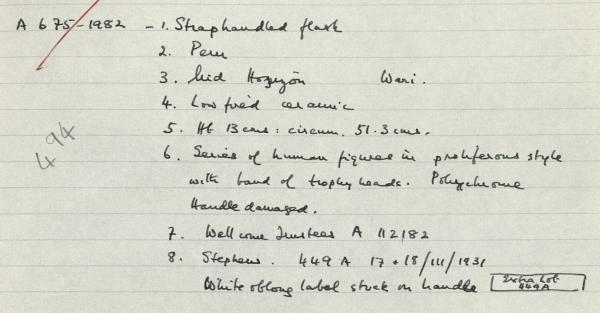 A 675-1982 - 1. Straphandled flask
2. Peru
3. Mid Horizon Wari.
4. Low fired ceramic
5. Ht 13 cms: circum. 51.3 cms.
6. Series of human figures in proliferous style
with band of trophy heads. Polychrome
Handle damaged.
7. Wellcome Trustees A 112/82
8. Stephens. 449 A 17 + 18/111/1931
White oblong label stuck on handle
Extra Lot
449A
494